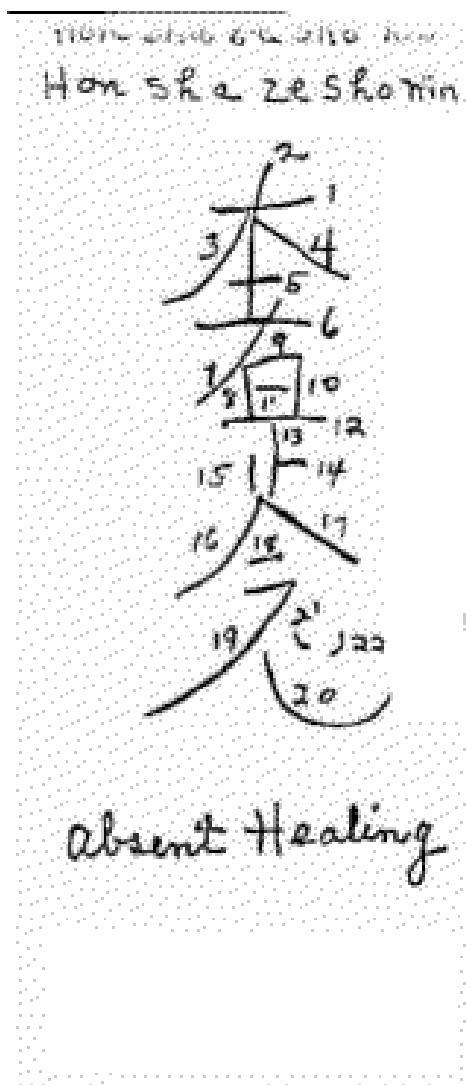 Hon sha ze Shonin
2
1
3 4
5
6
9
7 8 11 10
12
13
15 14
16 17
18
19 21 22
20
Absent Healing